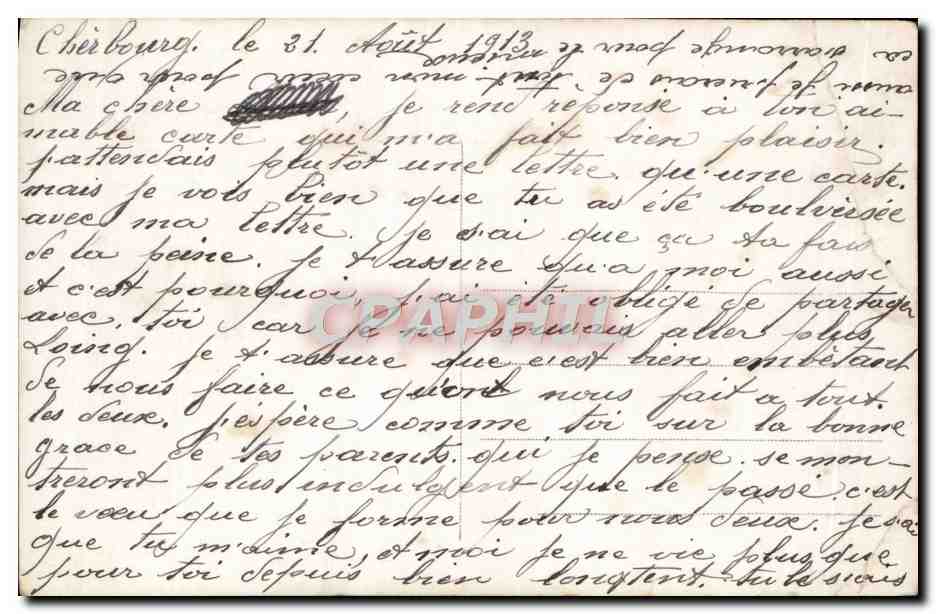 Chèrbourg. le 21. Août 1913
Ma chère , je rend réponse à ton ai-
mable carte qui m'a fait bien plaisir.
j'attendais plutôt une lettre. qu'une carte.
mais je vois bien que tu as été boulvirsée
avec ma lettre. je s'ai que ça ta fais
de la peine. je t'assure qu'a moi aussi
et c'est pourquoi, j'ai été obligé de partager
avec, toi car je ne pouvais aller plus,
Loing. je t'assure que c'est bien embêtant
de nous faire ce qu'ont nous fait a tout.
les deux. j'éspère comme toi sur la bonne
grace de tes parents. qui je pense. se mon-
treront plus indulgent que le passé. c'est
le vœu que je forme pour nous deux. je s'ai
que tu m'aime, et moi je ne vie plus que
pour toi depuis bien longtent. tu le s'ais
CPAPHIL